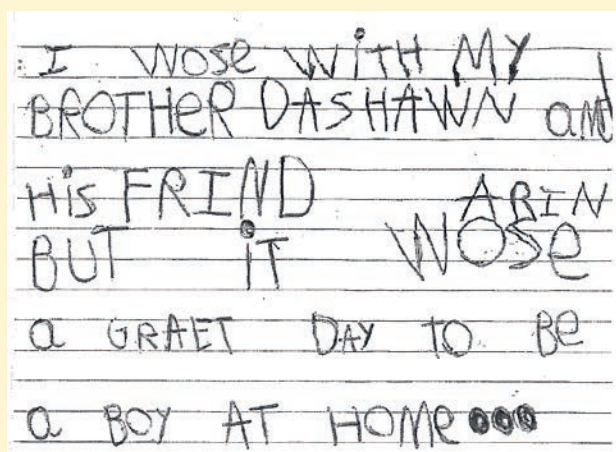 I WOSe WiTH MY
BROTHeR DASHAWN aNd
His FRIND ARIN
BUT iT WOSe
a GRAET DAY TO Be
a BOY AT HOMe...